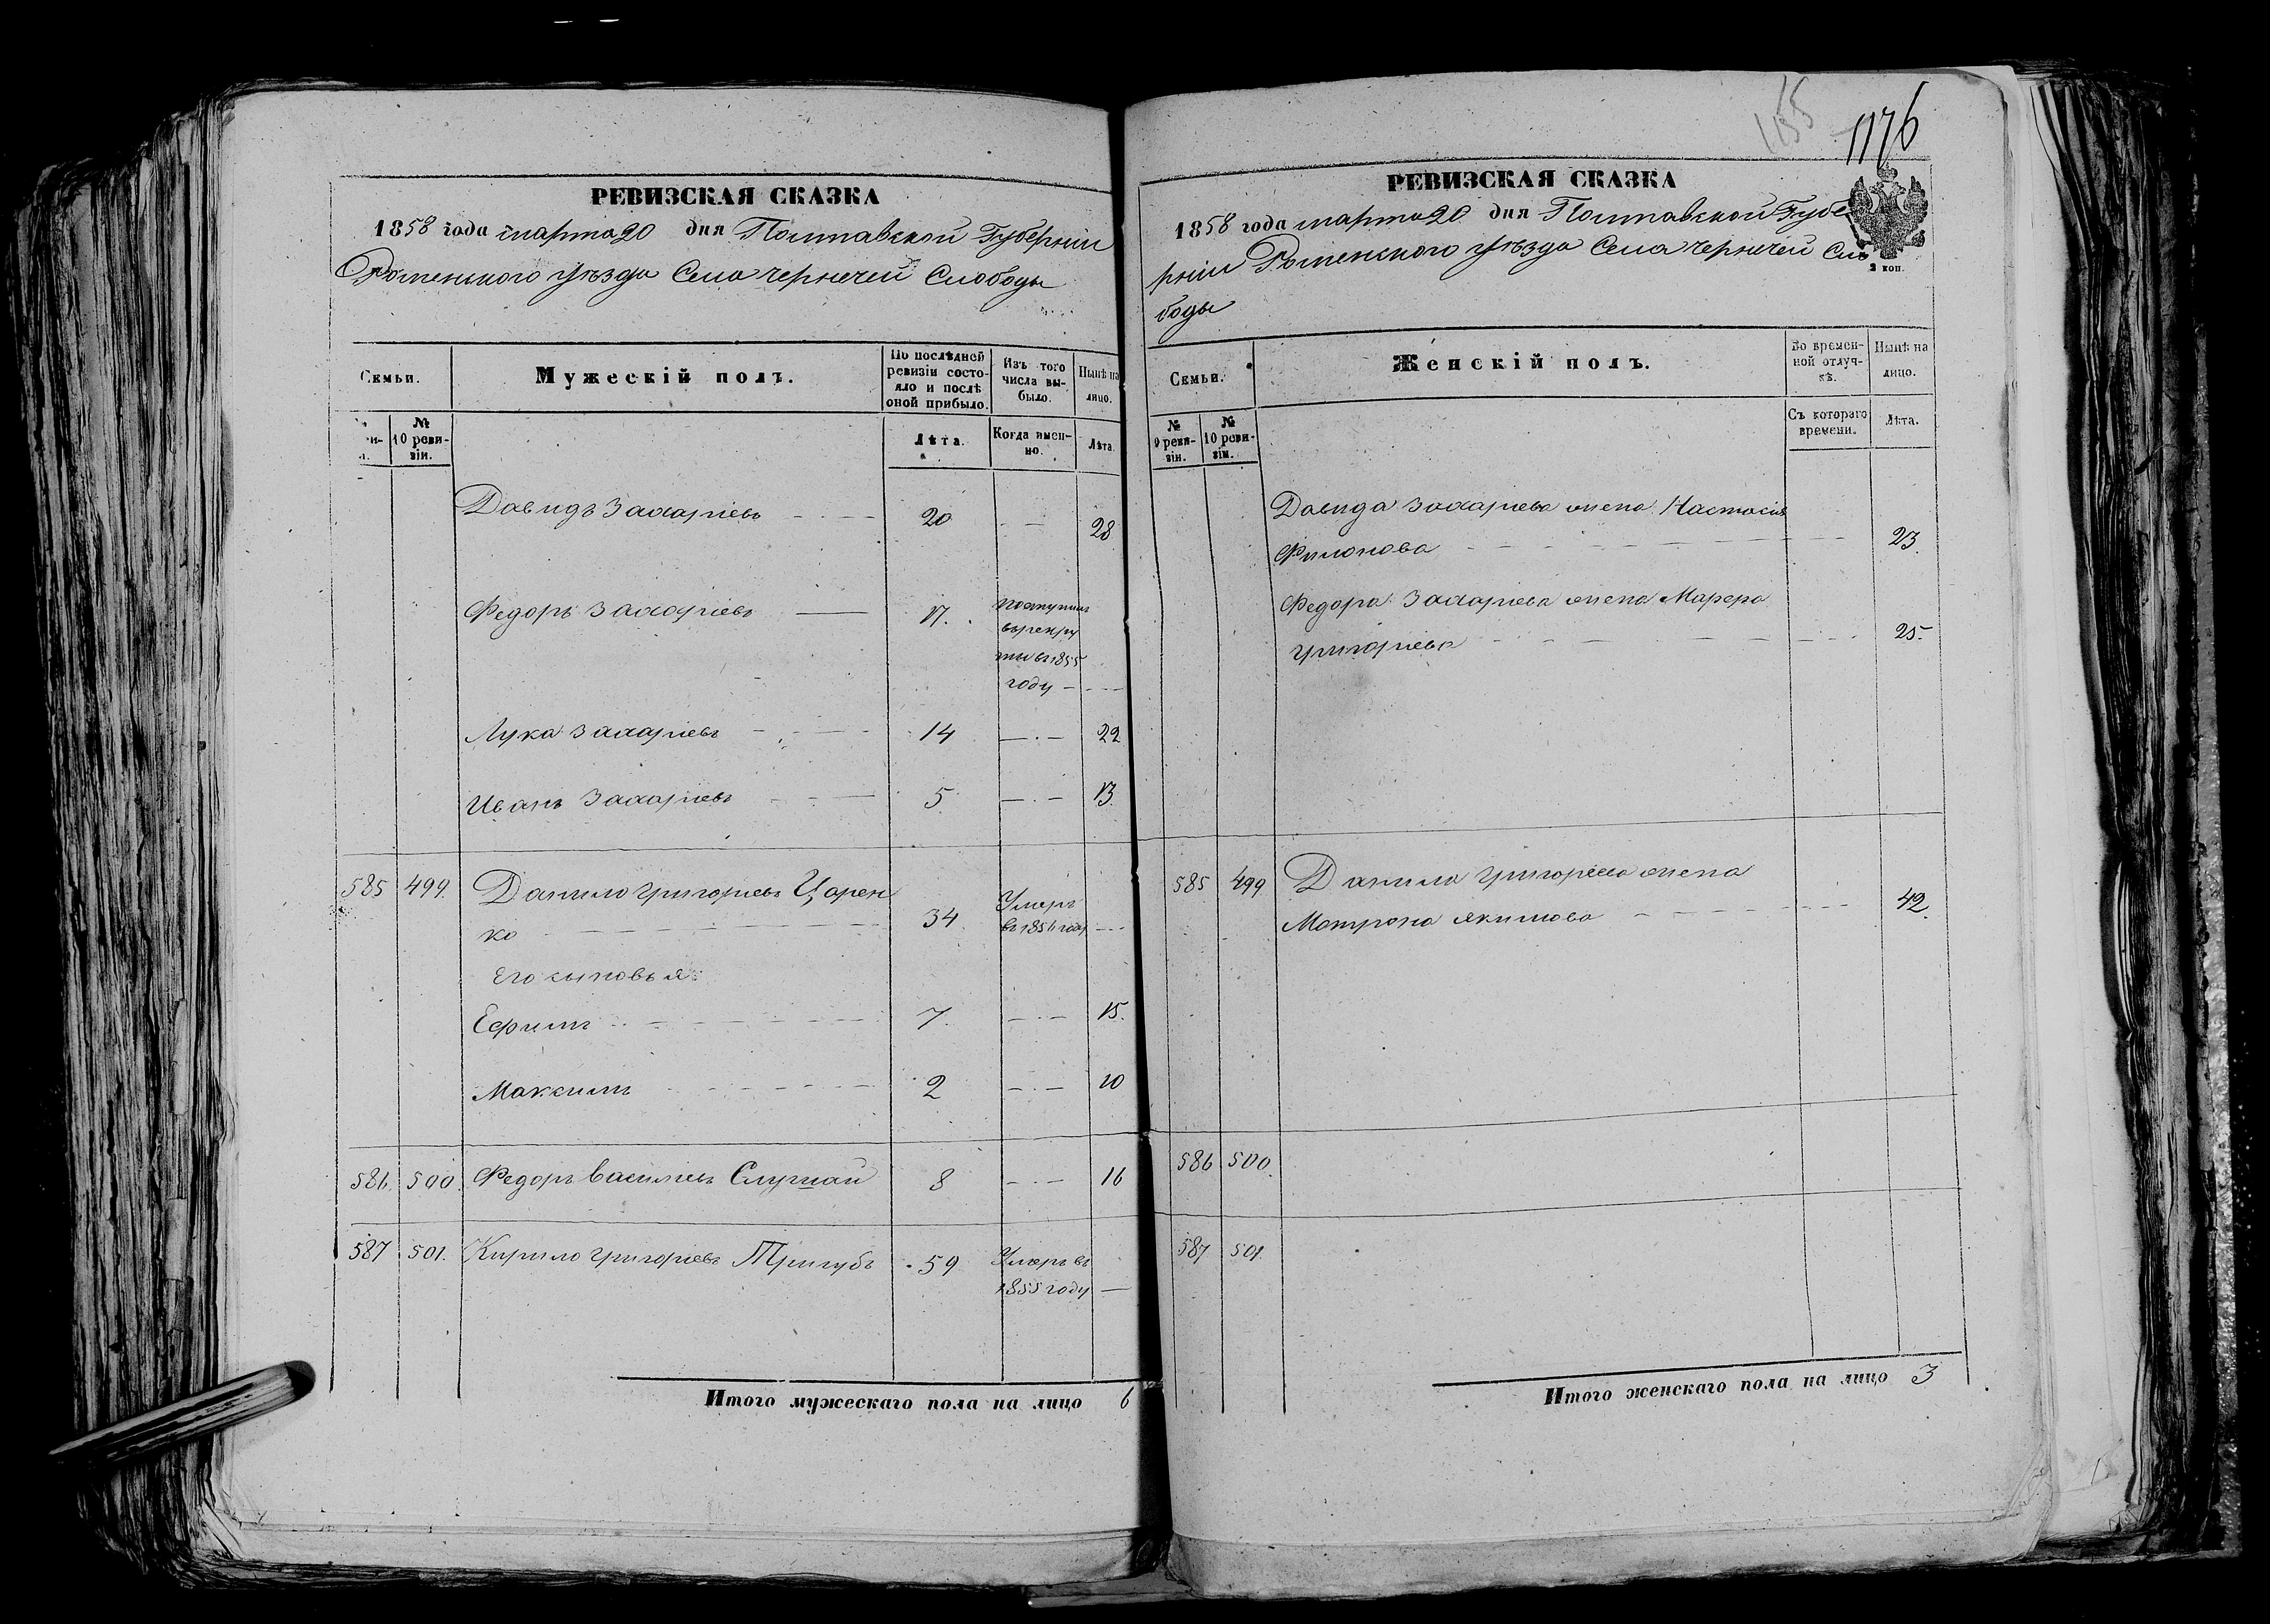 155
1176
РЕВИЗСКАЯ СКАЗКА
1858 года марта 20 дня Полтавской Губерніи
Роменского уѣзда Села Чернечей Слободы
Семьи.
Мужескій полъ.
По послѣдней ревизіи состояло и послѣ оной прибыло.
Изъ того числа выбыло.
Нынѣ на лицо.
№ 10 ревизіи.
Лѣта.
Когда именно.
Лѣта.
Давидъ Захаріевъ 20 28
Федоръ Захаріевъ 17. поступилъ
въ рекру
ты въ 1855
году
Лука Захаріевъ 14 22
Иванъ Захаріевъ 5 13
585 499. Данило Григорьевъ Царен
ко 34 Умеръ
въ 1856 году
Его сыновья:
Ефимъ 7. 15.
Максимъ 2 10
586. 500. Федоръ Васильевъ Слушай 8 16
587 501. Кирило Григорьевъ Тригубъ 59 Умеръ въ
1855 году
Итого мужескаго пола на лицо 6
РЕВИЗСКАЯ СКАЗКА
1858 года марта 20 дня Полтавской Губе
рніи Роменского уѣзда Села Чернечей Сло
боды
2 коп.
Семьи.
Женскій полъ.
Во временной отлучкѣ.
Нынѣ на лицо.
№ 9 ревизіи.
№ 10 ревизіи.
Съ котораго времени.
Лѣта.
Давида Захарьева жена Настасія
Филонова 23.
Федора Захарьева жена Марфа
Григорьева 25.
585 499. Данила Григорьева жена
Матрона Якимова 42.
586 500.
587 501
Итого женскаго пола на лицо 3